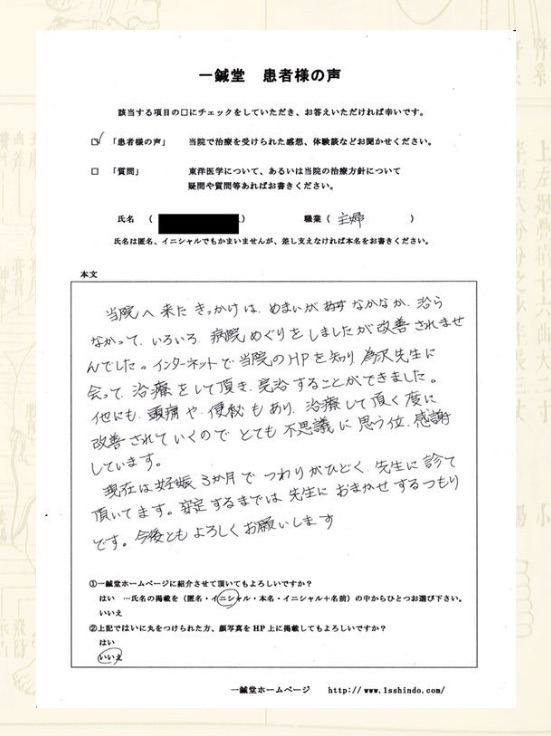 一鍼堂 患者様の声
該当する項目の口にチェックをしていただき、お答えいただければ幸いです。
☑ 「患者様の声」 当院で治療を受けられた感想、体験談などお聞かせください。
□ 「質問」 東洋医学について、あるいは当院の治療方針について
疑問や質問等あればお書きください。
氏名 ( ) 職業 ( 主婦 )
氏名は匿名、イニシャルでもかまいませんが、差し支えなければ本名をお書きください。
本文
当院へ来たきっかけは、めまいが なかなか、治ら
なかって、いろいろ、病院めぐりをしましたが改善されませ
んでした。インターネットで当院のHPを知り 為沢先生に
会って、治療をして頂き、完治することができました。
他にも、頭痛や、便秘もあり、治療して頂く度に
改善されていくので とても不思議に思う位、感謝
しています。
現在は妊娠3か月で つわりがひどく、先生に診て
頂いてます。安定するまでは、先生におまかせするつもり
です。今後ともよろしくお願いします
①一鍼堂ホームページに紹介させて頂いてもよろしいですか？
はい …氏名の掲載を（匿名・イニシャル・本名・イニシャル＋名前）の中からひとつお選び下さい。
いいえ
②上記ではいに丸をつけられた方、顔写真を HP 上に掲載してもよろしいですか？
はい
いいえ
一鍼堂ホームページ http://www.1sshindo.com/